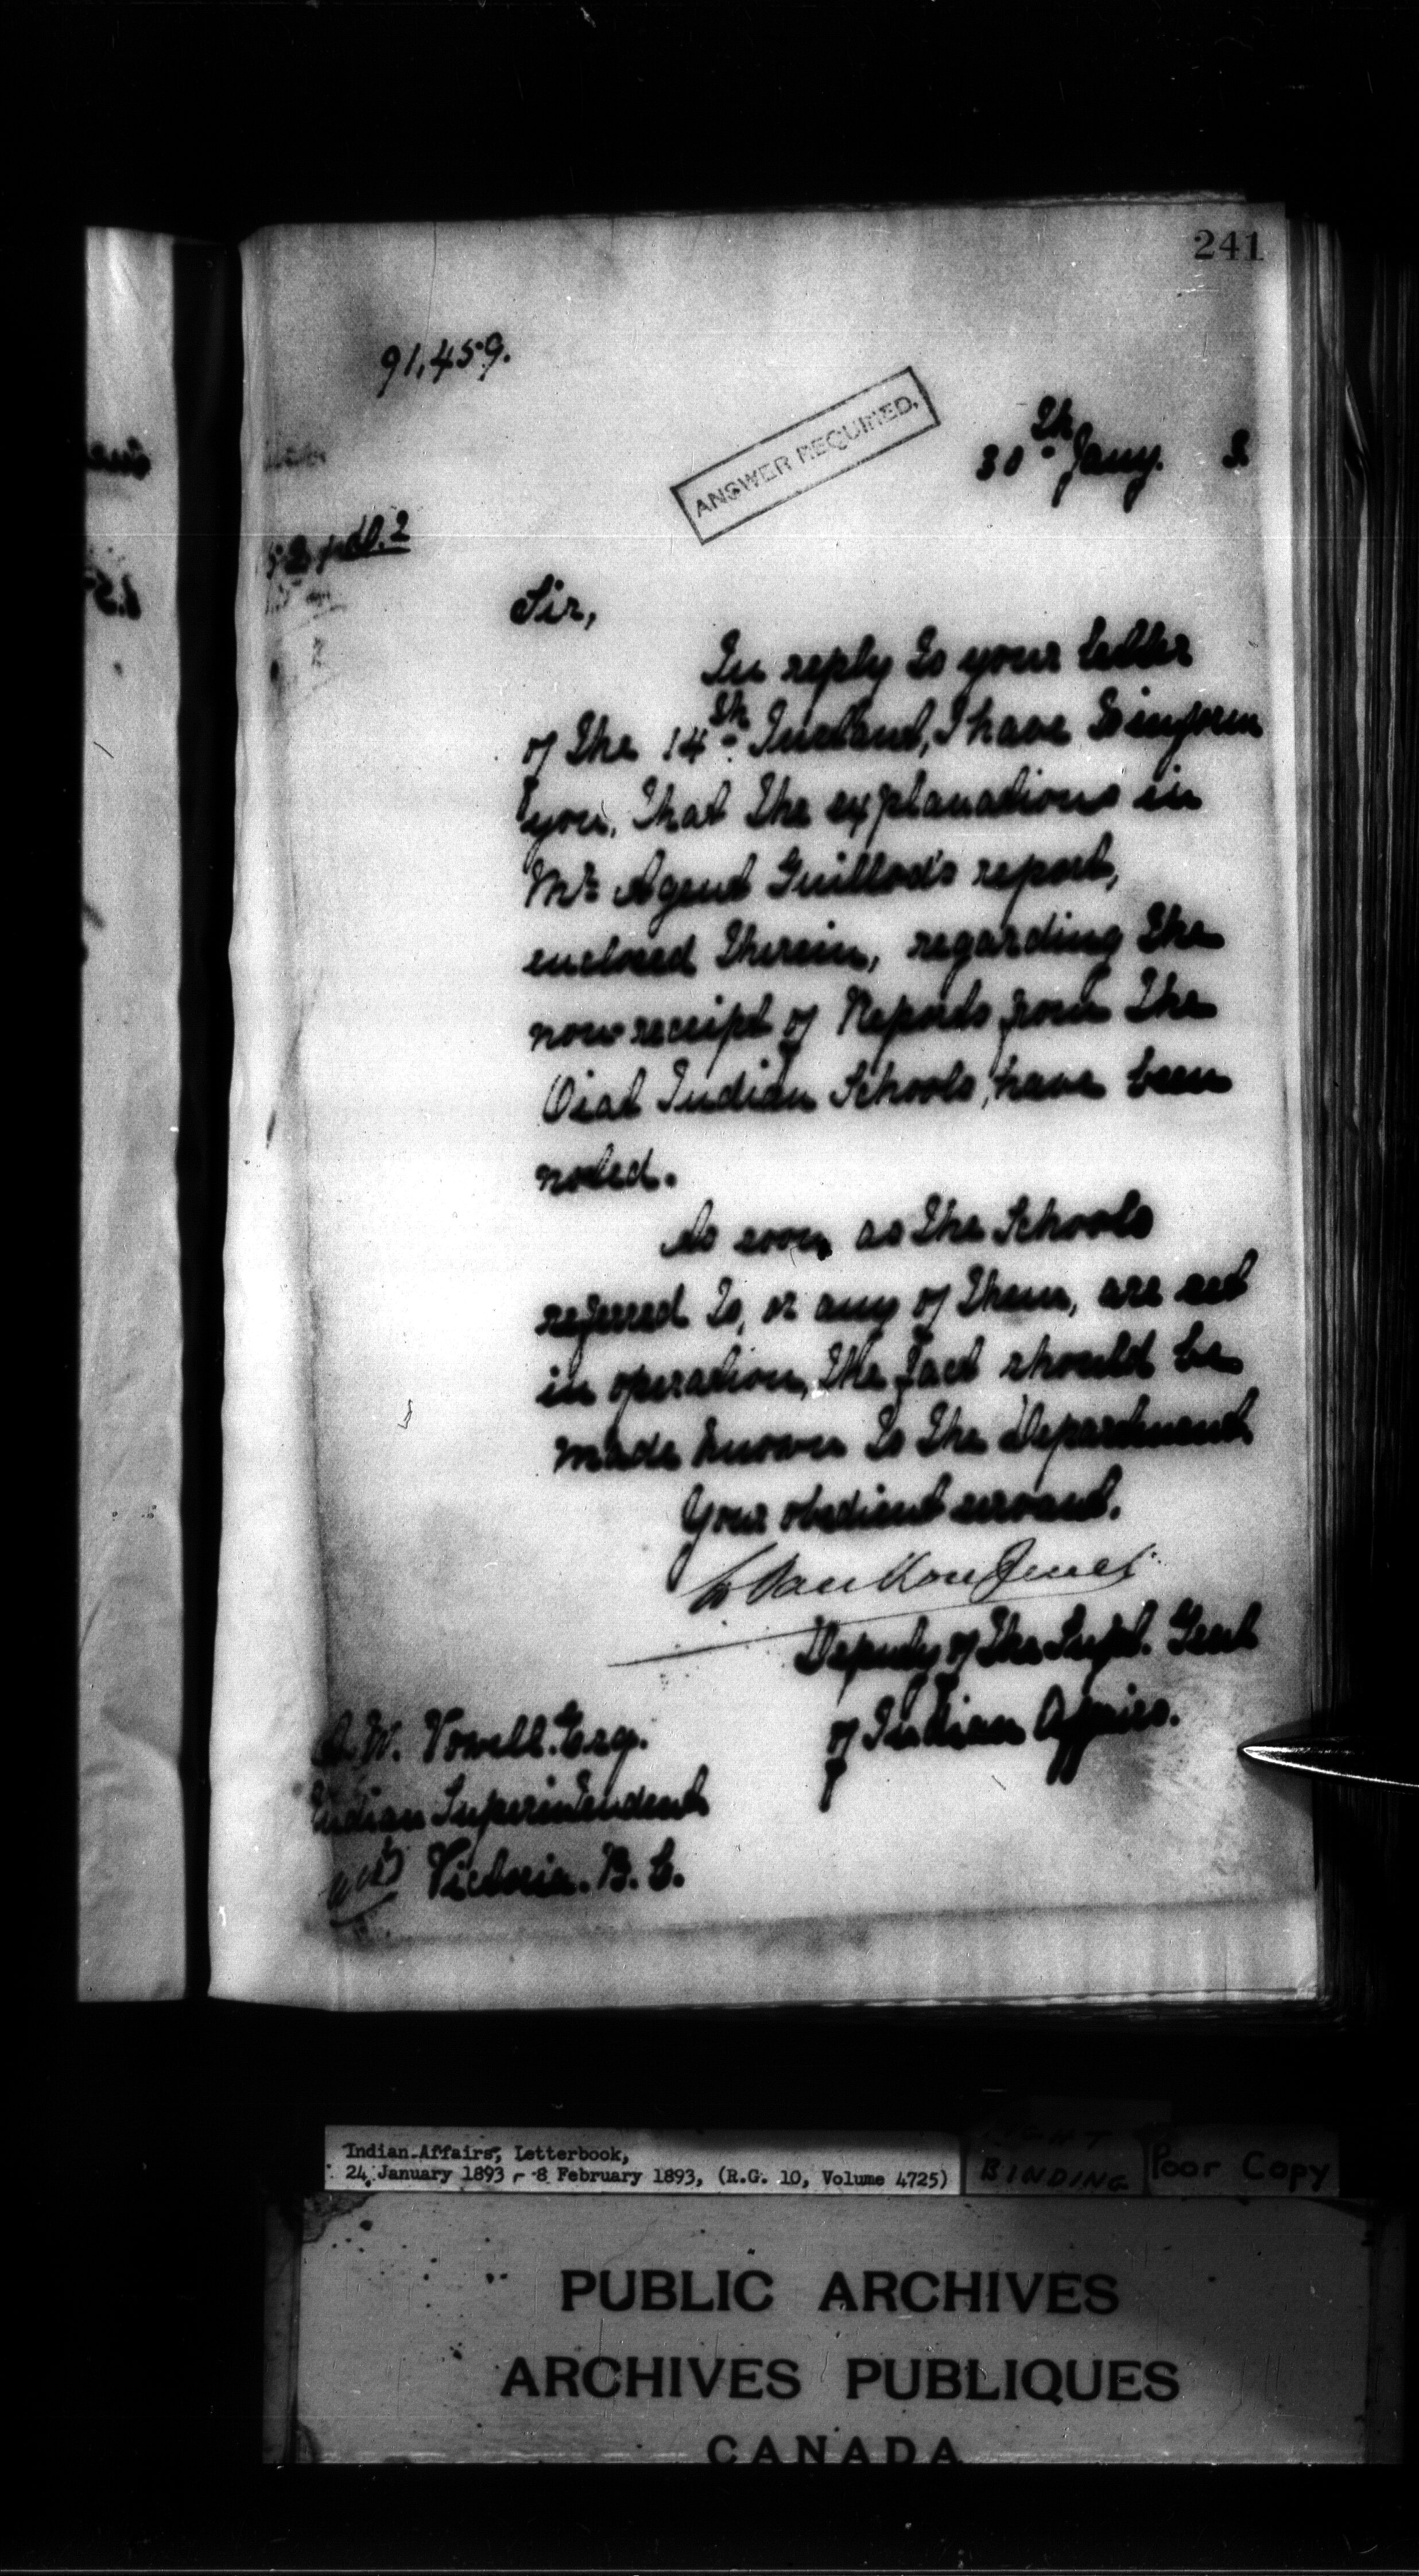 241
91,459.
ANSWER REQUIRED.
30th Jany. 3
Sir,
In reply to your letter
of the 14th Instant, I have to inform
you, that the explanations in
Mr Agent Guillod's report,
enclosed therein, regarding the
non receipt of Reports from the
Oiat Indian Schools, have been
noted.
As soon as the Schools
referred to, or any of them, are set
in operation, the fact should be
made known to the Department
Your obedient servant.
L Vankoughnet
Deputy of the Supt. Genl
of Indian Affairs.
A.W. Vowell. Esq.
Indian Superintendent
Victoria. B.C.
Indian Affairs, Letterbook,
24 January 1893 - 8 February 1893, (R.G. 10, Volume 4725)
BINDING
Poor Copy
PUBLIC ARCHIVES
ARCHIVES PUBLIQUES
CANADA